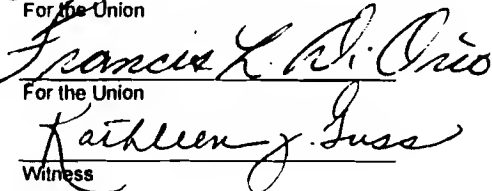 For the Union
Francis L. Di Orio
For the Union
Kathleen J. Guss
Witness